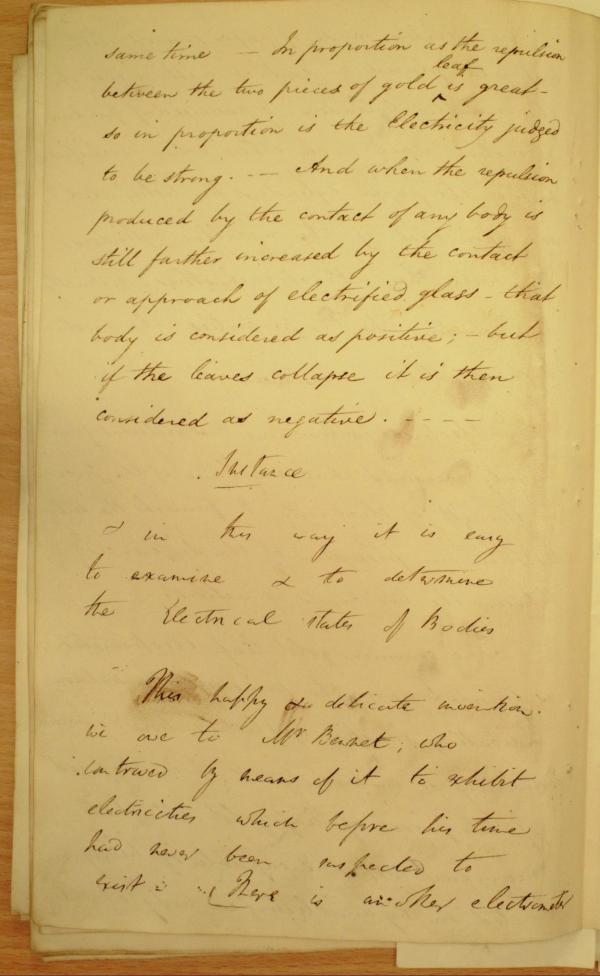 same time — In proportion as the repulsion
between the two pieces of gold leaf is great –
so in proportion is the Electricity judged
to be strong. – — And when the repulsion
produced by the contact of any body is
still farther increased by the contact
or approach of electrified glass – that
body is considered as positive; – but
if the leaves collapse it is then
considered as negative. - - - -
Instance
& in this way it is easy
to examine & to determine
the Electrical states of Bodies
This happy & delicate invention.
we owe to Mr Bennet; who
contrived by means of it to exhibit
electricities which before his time
had never been suspected to
exist – Here is another electrometer